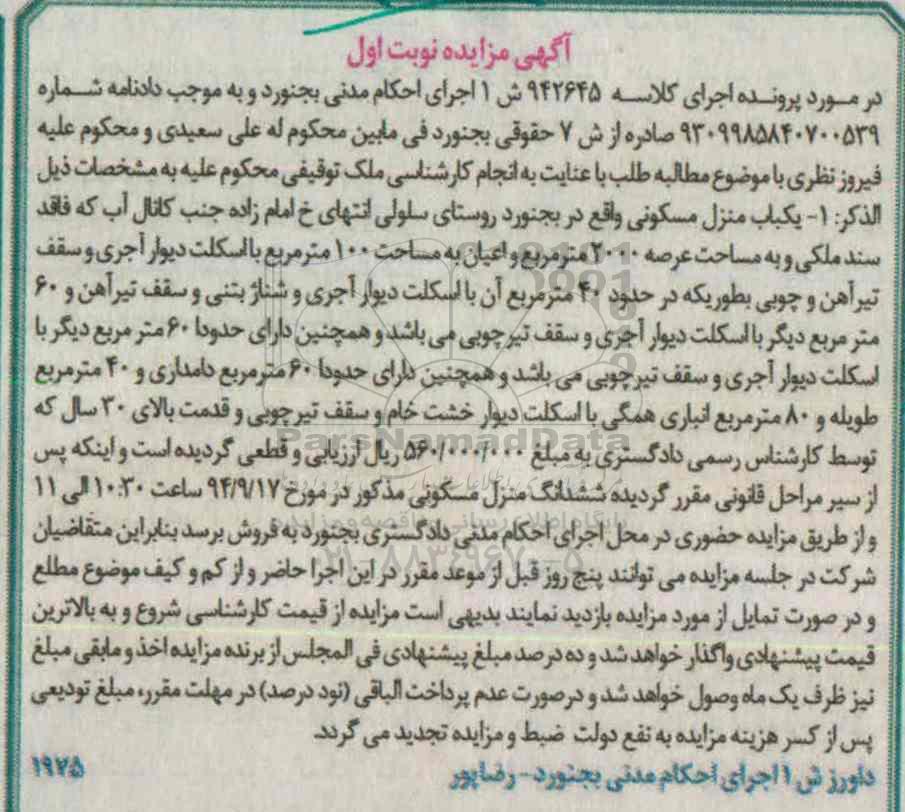 آگهی مزایده نوبت اول
در مورد پرونده اجرای کلاسه ۹۴۲۶۴۵ ش ۱ اجرای احکام مدنی بجنورد و به موجب دادنامه شماره
۹۳۰۹۹۸۵۸۴۰۷۰۰۵۳۹ صادره از ش ۷ حقوقی بجنورد فی مابین محکوم له علی سعیدی و محکوم علیه
فیروز نظری با موضوع مطالبه طلب با عنایت به انجام کارشناسی ملک توقیفی محکوم علیه به مشخصات ذیل
الذکر: ۱- یکباب منزل مسکونی واقع در بجنورد روستای سلولی انتهای خ امام زاده جنب کانال آب که فاقد
سند ملکی و به مساحت عرصه ۲۰۰۰ مترمربع و اعیان به مساحت ۱۰۰ مترمربع با اسکلت دیوار آجری و سقف
تیرآهن و چوبی بطوریکه در حدود ۴۰ مترمربع آن با اسکلت دیوار آجری و شناژ بتنی و سقف تیرآهن و ۶۰
متر مربع دیگر با اسکلت دیوار آجری و سقف تیر چوبی می باشد و همچنین دارای حدودا ۶۰ متر مربع دیگر با
اسکلت دیوار آجری و سقف تیرچوبی می باشد و همچنین دارای حدودا ۶۰ مترمربع دامداری و ۴۰ مترمربع
طویله و ۸۰ مترمربع انباری همگی با اسکلت دیوار خشت خام و سقف تیر چوبی و قدمت بالای ۳۰ سال که
توسط کارشناس رسمی دادگستری به مبلغ ۵۶۰/۰۰۰/۰۰۰ ریال ارزیابی و قطعی گردیده است و اینکه پس
از سیر مراحل قانونی مقرر گردیده ششدانگ منزل مسکونی مذکور در مورخ ۹۴/۹/۱۷ ساعت ۱۰:۳۰ الی ۱۱
و از طریق مزایده حضوری در محل اجرای احکام مدنی دادگستری بجنورد به فروش برسد بنابراین متقاضیان
شرکت در جلسه مزایده می توانند پنج روز قبل از موعد مقرر در این اجرا حاضر و از کم و کیف موضوع مطلع
و در صورت تمایل از مورد مزایده بازدید نمایند بدیهی است مزایده از قیمت کارشناسی شروع و به بالاترین
قیمت پیشنهادی واگذار خواهد شد و ده درصد مبلغ پیشنهادی فی المجلس از برنده مزایده اخذ و مابقی مبلغ
نیز ظرف یک ماه وصول خواهد شد و درصورت عدم پرداخت الباقی (نود درصد) در مهلت مقرر، مبلغ تودیعی
پس از کسر هزینه مزایده به نفع دولت ضبط و مزایده تجدید می گردد.
داورز ش ۱ اجرای احکام مدنی بجنورد - رضاپور
۱۹۲۵
ParsNamadData
۰۲۱-۸۸۳۴۹۶۷۰-۵